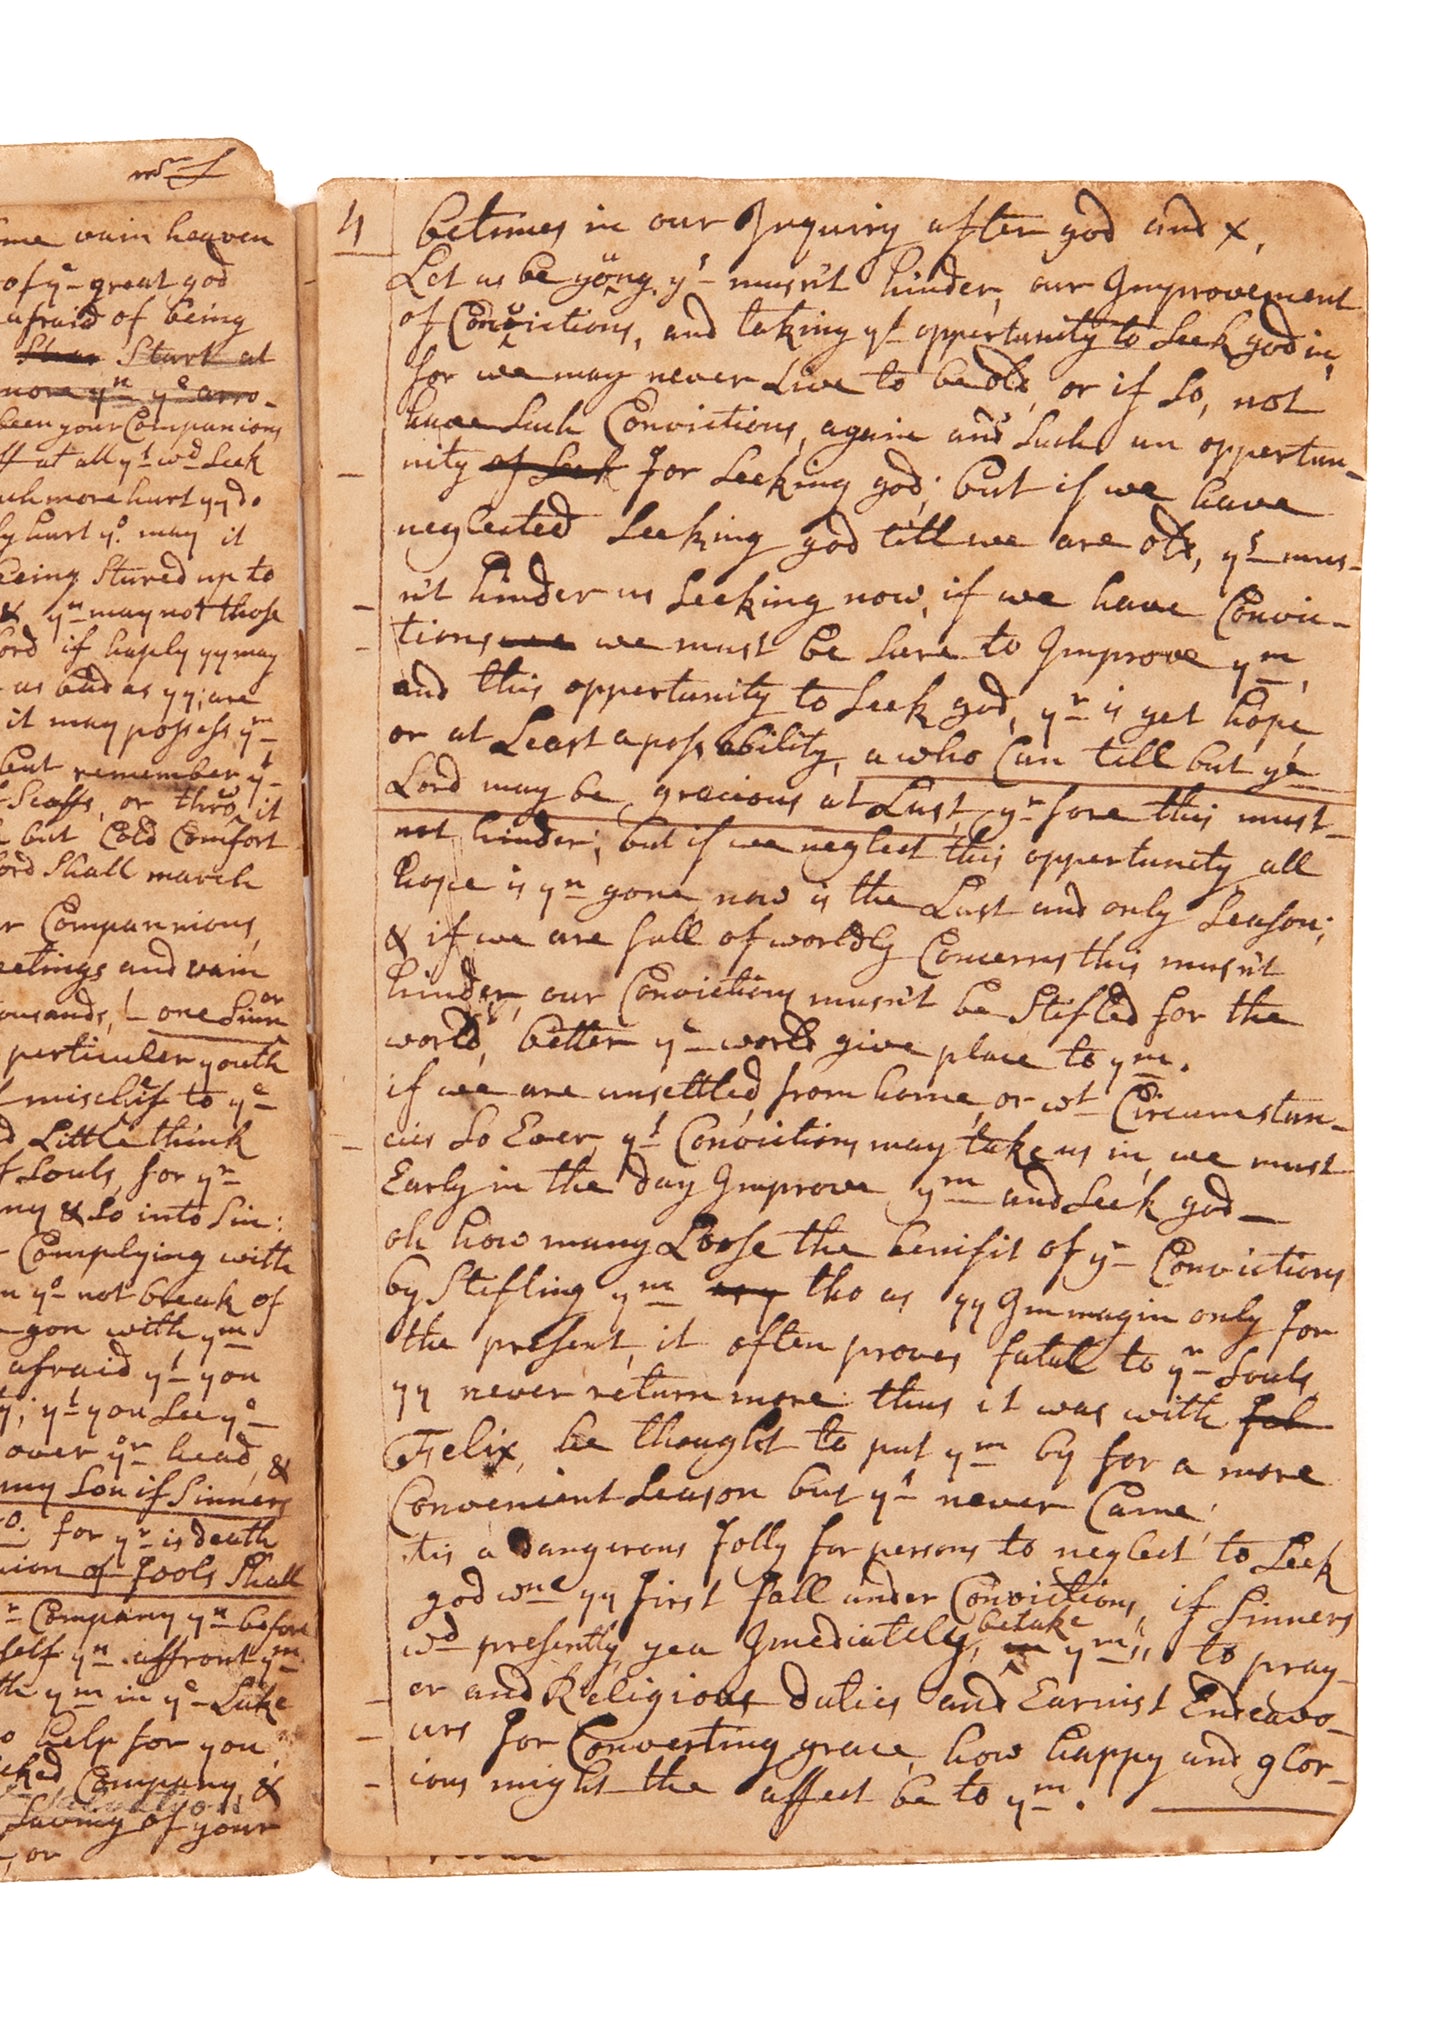 m^r f
me vain heaven
of y^e great god
afraid of being
Start at
more y^n y^e arro-
been your Companions
at all y^t w^d Seek
uch more hurt yy do
ly hurt y^o may it
being Stured up to
& y^n may not those
ord if haply yy may
as bad as yy are
it may possess y^m
but remember y^t
Scoffs, or thro it
but Cold Comfort
ord Shall march
r Companions,
eetings and vain
ousands, one Sinn^or
perticuler youth
mischif to y^e
d Little think
f Souls, for y^r
ny & So into Sin:
Complying with
n y^o not break of
gon with y^m
afraid y^t you
y; y^t you See y^e
over y^or head, &
my Son if Sinners
o. for y^r is death
nion of fools Shall
Company y^n before
self y^n affront y^m
th y^m in y^e Lake
o help for you
cked Company &
Saving of your
, or
4 betimes in our Inquiry after god and x,
Let us be yoong y^s musn't hinder, our Improvement
of Convictions, and taking y^t oppertunity to Seek god in,
for we may never Live to be old, or if So, not
have Such Convictions, again and Such an oppertun-
nity of Seek for Seeking god; but if we have
neglected Seeking god till we are old, y^s mus-
n't hinder us Seeking now, if we have Convic-
tions we must be Sure to Improve y^m,
and this oppertunity to Seek god, y^r is yet hope
or at Least a possability, a who Can tell but y^e
Lord may be gracious at Last, y^r fore this must
not hinder; but if we neglect this oppertunity all
hope is y^n gone, now is the Last and only Season;
& if we are full of worldly Concerns this musn't
hinder, our Convictions musn't be Stifled for the
world, better y^e world give place to y^m.
if we are unsettled, from home, or w^t Circumstan-
cies So Ever, y^t Convictions may take us in, we must
Early in the day Improve y^m and Seek god —
oh how many Loose the benifit of y^r Convictions
by Stifling y^m tho as yy Immagin only for
the present, it often proves fatal to y^r Souls
yy never return more: thus it was with fel
Felix, he thought to put y^m by for a more
Convenient Season but y^t never Came.
tis a dangerous folly for persons to neglect to Seek
god w^ne yy first fall under Convictions, if Sinners
w^d presently, yea Imediately, betake y^m^s to pray-
er and Religious duties and Earnist Endeavo-
urs for Converting grace, how happy and glor-
ious might the affect be to y^m.